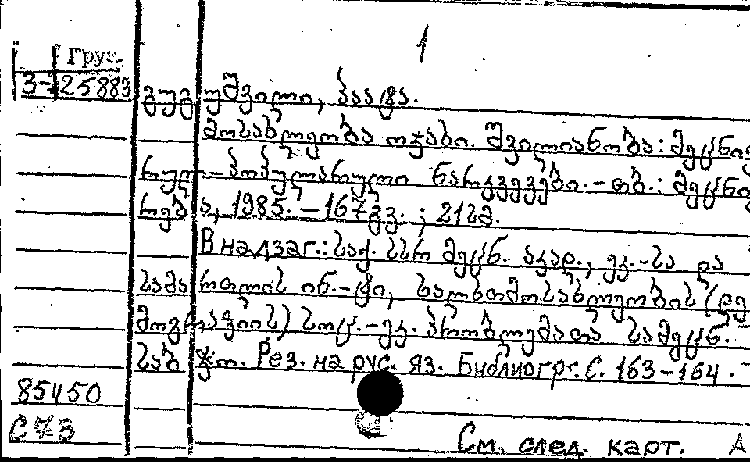 1
Груз.
3-25883
გუგუშვილი, პაატა.
მოსახლეობა ოჯახი. შვილიანობა: მეცნიე
რულ-პოპულარული ნარკვევები. -თბ.: მეცნიე
რება, 1985. - 167გვ. ; 21სმ.
В надзаг.: საქ. სსრ მეცნ. აკად., ეკ.-სა და
სამართლის ინ.-ტი, ხალხთმოსახლეობის (დე
მოგრაფიის) სოც.-ეკ. პრობლემათა სამეცნ.
საბჭო. Рез. на рус. яз. Библиогр.: с. 163-164.
85450
С73
См. след. карт.